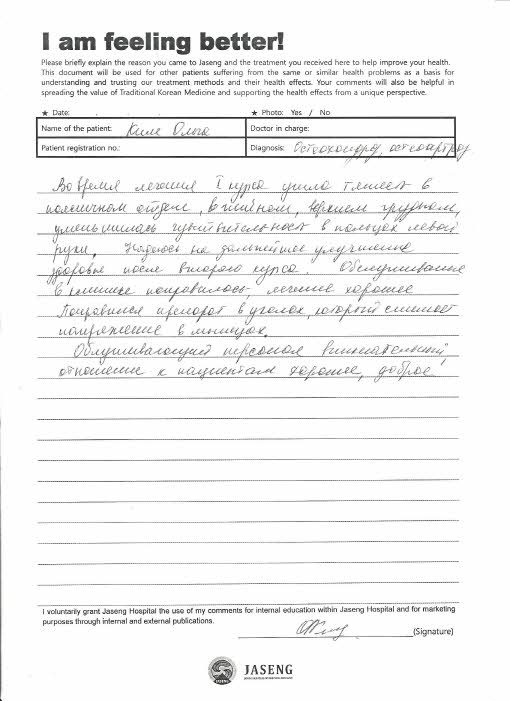 I am feeling better!
Please briefly explain the reason you came to Jaseng and the treatment you received here to help improve your health.
This document will be used for other patients suffering from the same or similar health problems as a basis for
understanding and trusting our treatment methods and their health effects. Your comments will also be helpful in
spreading the value of Traditional Korean Medicine and supporting the health effects from a unique perspective.
★ Date: . . . ★ Photo: Yes / No
Name of the patient: Ким Ольга Doctor in charge:
Patient registration no.: Diagnosis: Остеохондроз, остеоартроз
Во время лечения I курса ушла тяжесть в
поясничном отделе, в шейном, верхнем грудном,
уменьшилась чувствительность в пальцах левой
руки. Надеюсь на дальнейшее улучшение
здоровья после второго курса. Обслуживание
в клинике понравилось, лечение хорошее
Понравился препарат в уголок, который снимает
напряжение в мышцах.
Обслуживающий персонал внимательный,
отношение к пациентам хорошее, доброе.
I voluntarily grant Jaseng Hospital the use of my comments for internal education within Jaseng Hospital and for marketing
purposes through internal and external publications.
(Signature)
JASENG